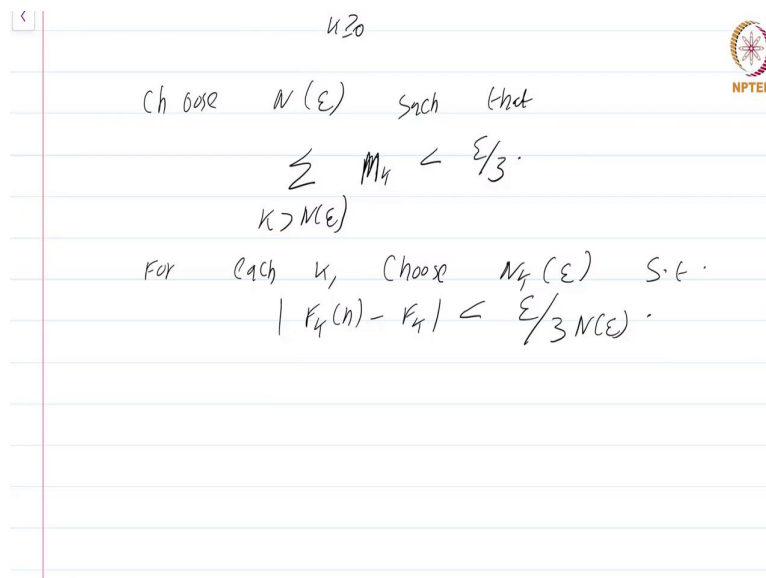 K≥0
NPTEL
Choose N(ε) such that
∑ M_k < ε/3.
K>N(ε)
For each K, Choose N_k(ε) s.t.
| F_k(n) - F_k | < ε/3N(ε).